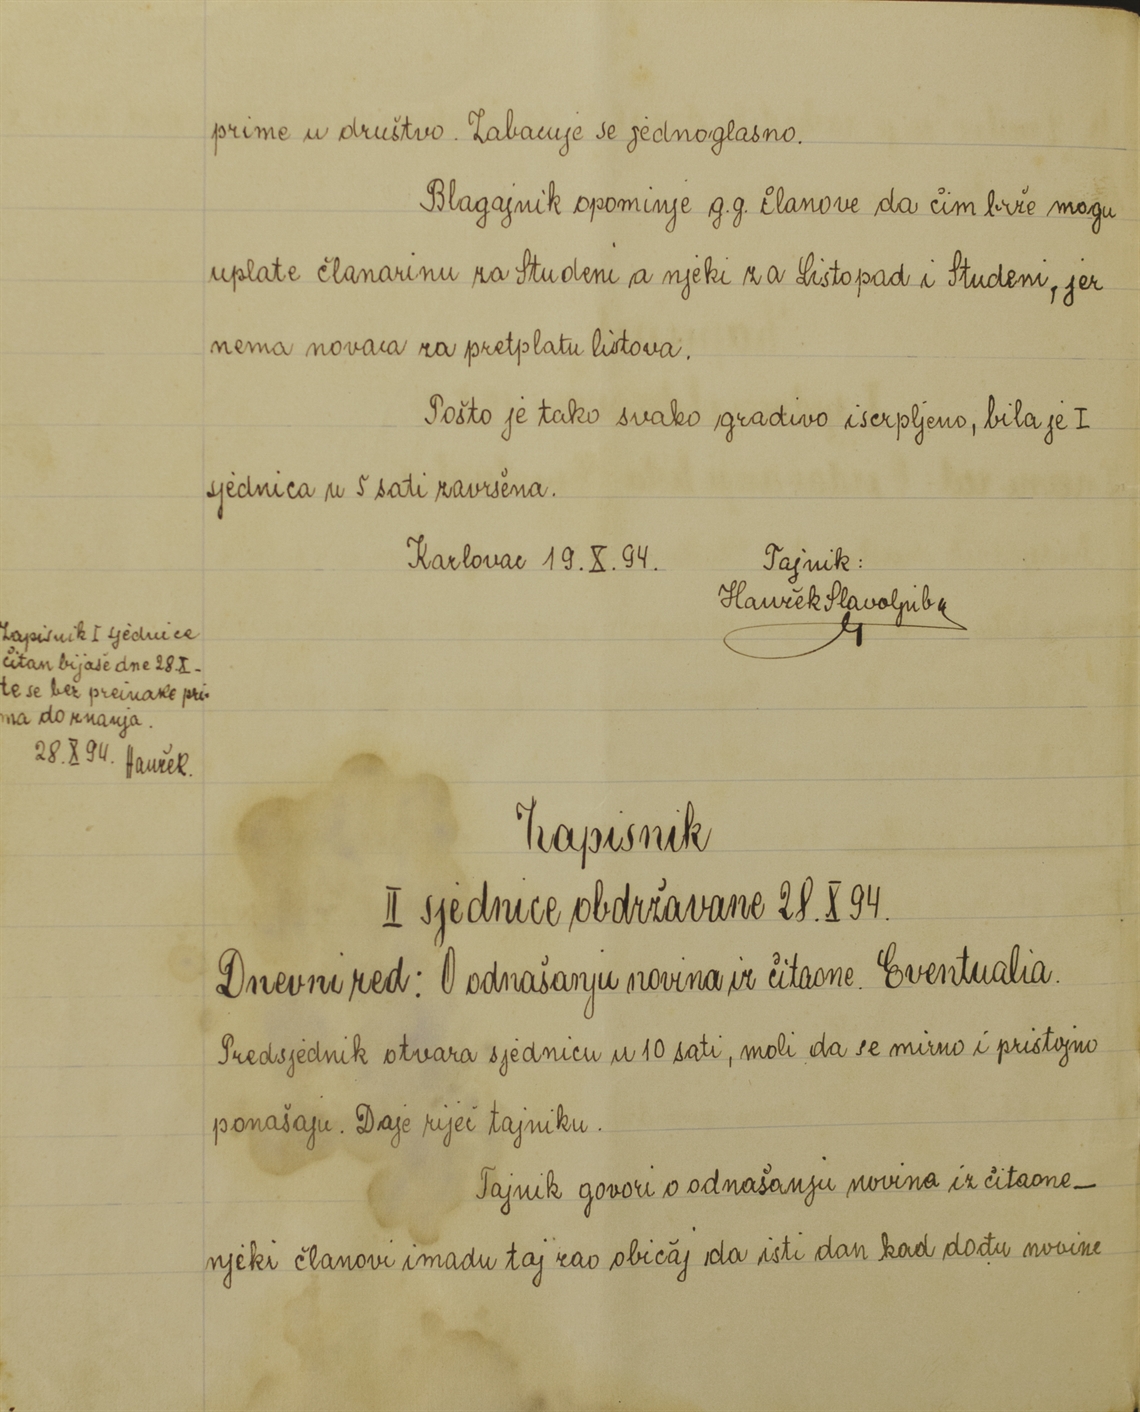 prime u društvo. Zabacuje se jednoglasno.
Blagajnik opominje g.g. članove da čim brže mogu
uplate članarinu za Studeni a njeki za Listopad i Studeni, jer
nema novaca za pretplatu listova.
Pošto je tako svako gradivo iscrpljeno, bila je I
sjednica u 5 sati završena.
Karlovac 19.X.94. Tajnik:
Slavoljub
Zapisnik I sjednice
čitan bijaše dne 28.X-
te se bez preinake pri-
ma do znanja.
28.X 94.
Zapisnik
II sjednice obdržavane 28.X 94.
Dnevni red: O odnašanju novina iz čitaone. Eventualia.
Predsjednik otvara sjednicu u 10 sati, moli da se mirno i pristojno
ponašaju. Daje riječ tajniku.
Tajnik govori o odnašanju novina iz čitaone_
njeki članovi imadu taj zao običaj da isti dan kad dođu novine